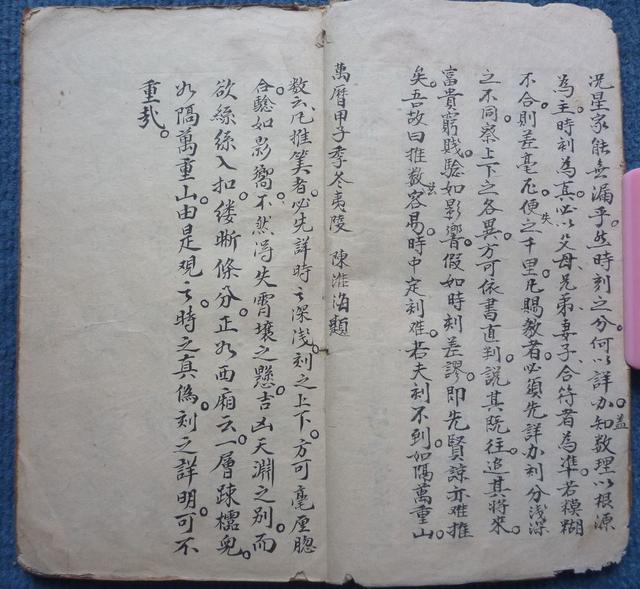 况星家能無漏乎。然時刻之分。何以詳加知数理以根源。蓋
為主。時刻為真。必以父母兄弟妻子。合符者為準。若模糊
不合。則差毫厘。便失之千里。凡賜教者。必須先詳加刻分浅深
之不同。察上下之各異。方可依書直到。説其既往。追其将來。
富貴窮賤。驗如影響。假如時刻差謬。即先賢諒亦难推
矣。吾故曰推数容易。時中定刻难。若夫刻不到。如隔萬重山
萬曆甲子季冬夷陵 陳淮海題
数云。凡推筭者。必先詳時之深浅。刻之上下。方可毫厘
合驗如影嚮。不然得失霄壤之懸。吉凶天淵之别。而
欲絲絲入扣。缕晰條分。正如西廂云。一層疎櫺兒。
如隔萬重山。由是观之。時之真偽。刻之詳明。可不
重哉。